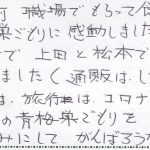 可 職場でもらって食
巣ごもりに感動しました
で 上田と松本で
ましたく 通販は、し
は、旅行は コロナ
の青梅巣ごもりを
みにして がんばろう